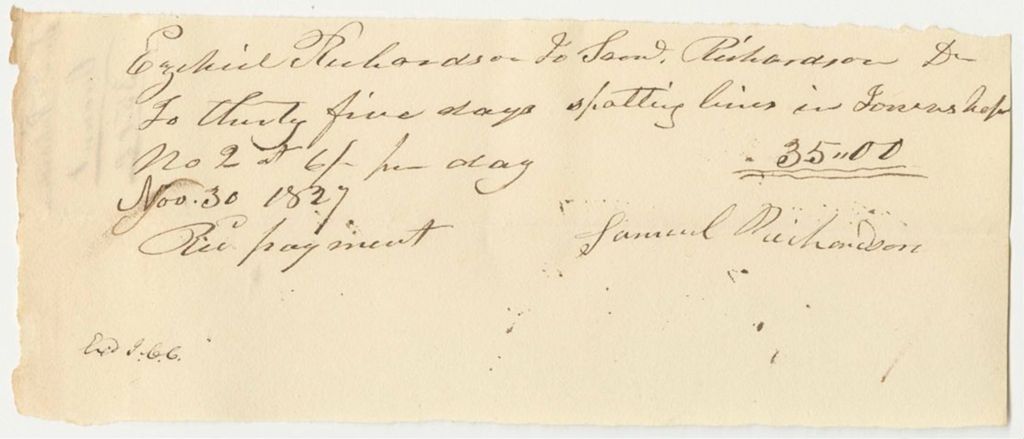 Ezekiel Richardson To Saml. Richardson Dr
To thirty five days spotting lines in Township
No 2 at 6/- per day 35"00
Nov. 30 1827
Rec payment Samuel Richardson